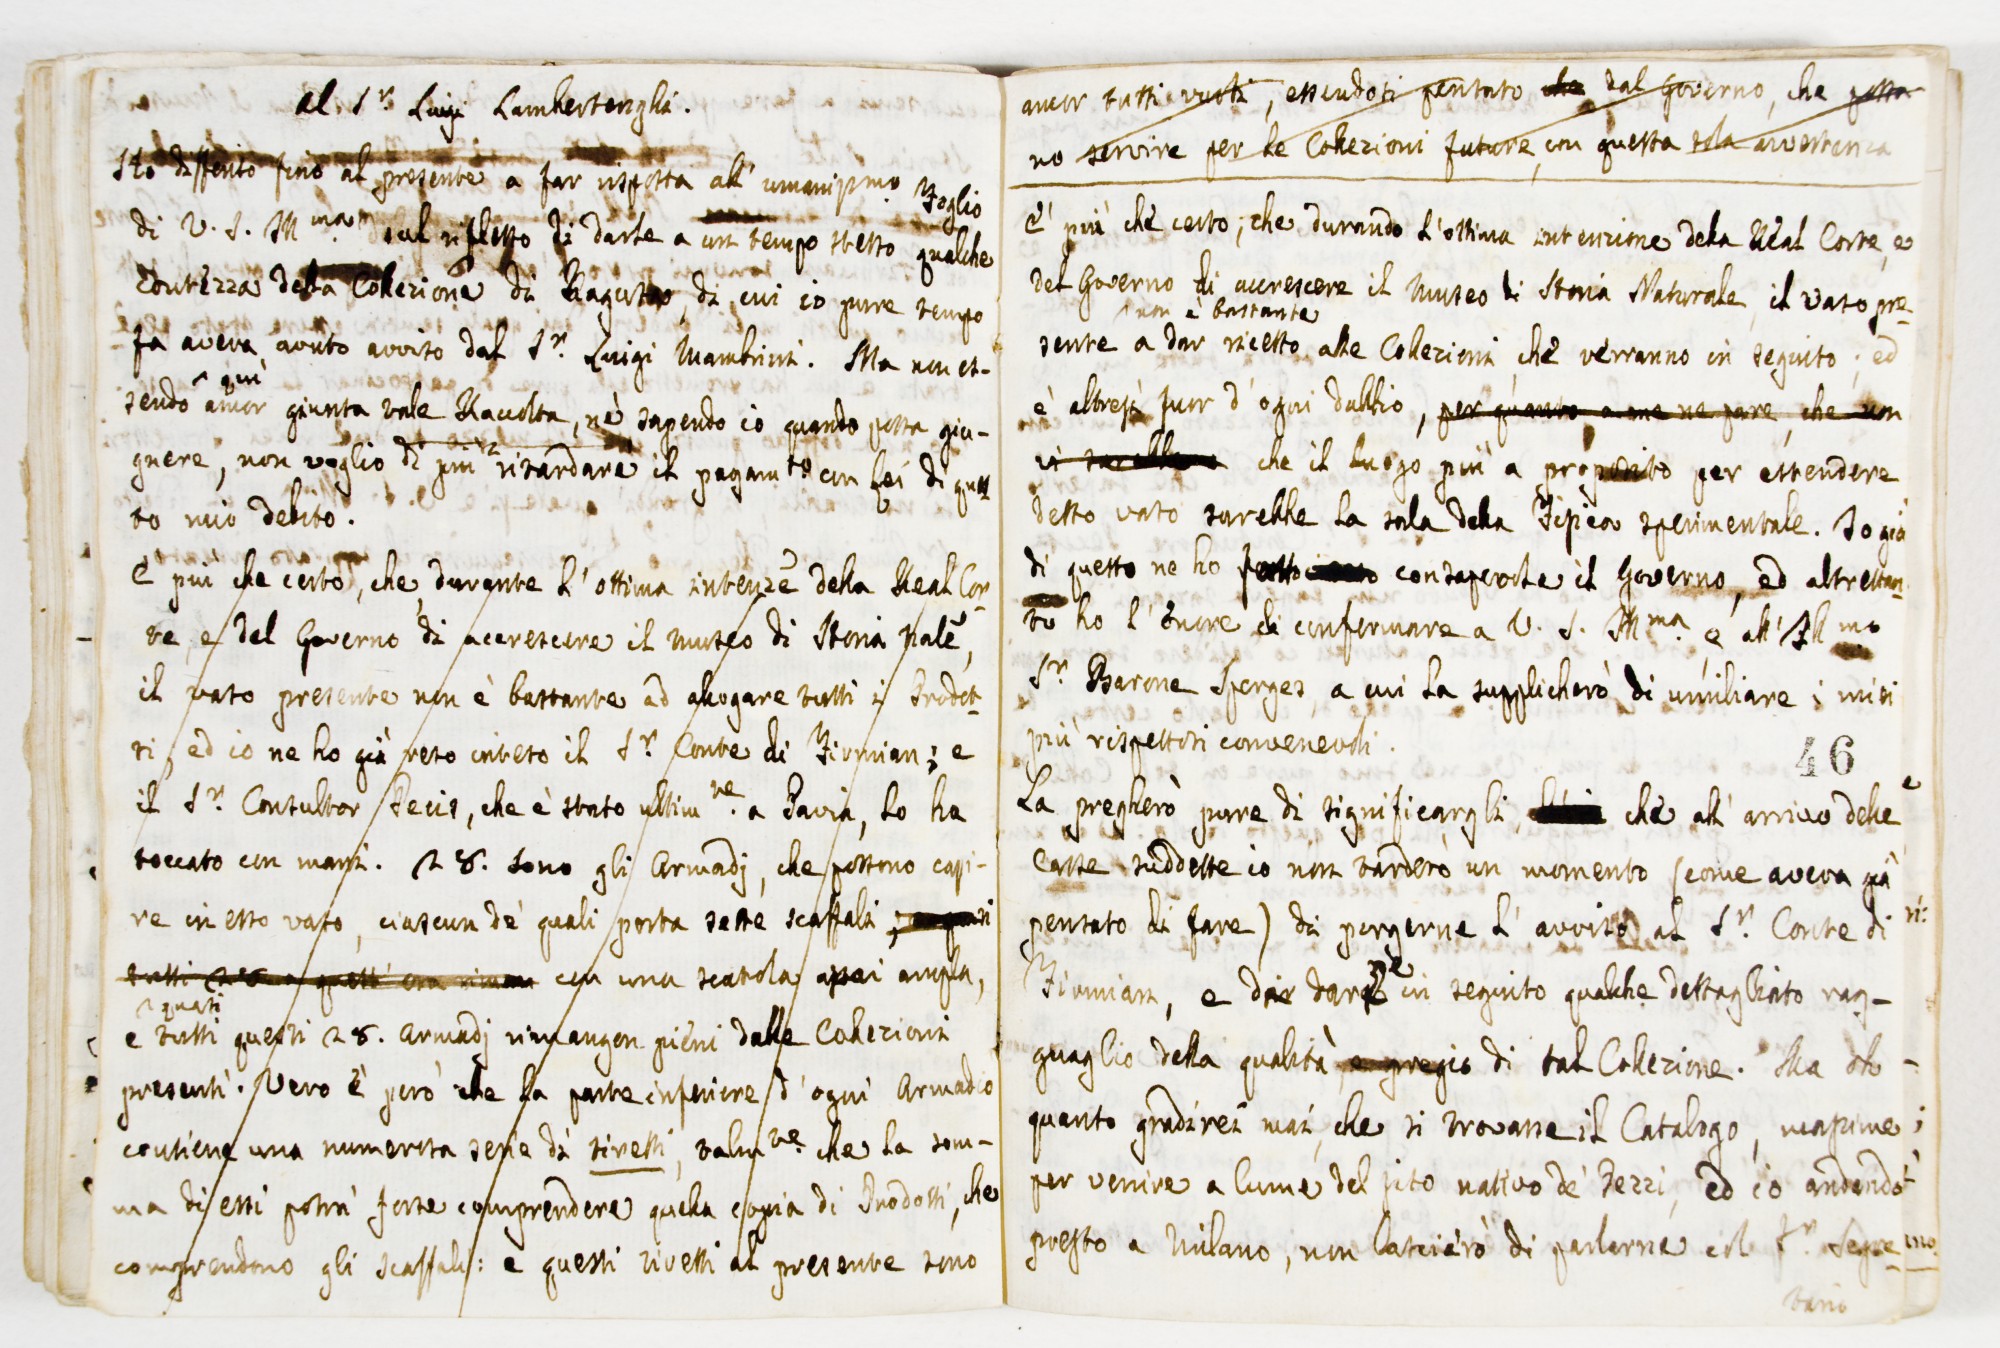 Al Sr. Luigi Lambertenghi.
Ho differito fino al presente a far risposta all' umanissmo. Foglio
di V. S. Illma. sul riflesso di darle a un tempo stesso qualche
contezza della Collezione di Ragusa, di cui io pure tempo
fa aveva avuto avviso dal Sr. Luigi Mambrini. Ma non es-
qui
sendo ancor giunta tale Raccolta, nè sapendo io quando possa giu-
gnere, non voglio di più ritardare il pagamto. con Lei di ques
to mio debito.
È più che certo, che durante l' ottima intenze della Real Cor-
te, e del Governo di accrescere il Museo di Storia Nale,
il vaso presente non è bastante ad allogare tutti i Prodot-
ti, ed io ne ho già reso inteso il Sr. Conte di Firmian; e
il Sr. Consultor Pecis, che è stato ultimte. a Pavia, lo ha
toccato con mani. 28. sono gli Armadj, che possono capi-
re in esso vaso, ciascun de' quali porta sette scaffali, e quasi
tutti 28 a quest' ora con una scatola assai ampla,
quasi
e tutti questi 28. Armadj rimangon pieni dalle Collezioni
presenti. Vero è però che la parte inferiore d' ogni Armadio
contiene una numerosa serie di tiretti, talmte. che la som-
ma di essi potrà forse comprendere quella copia di Prodotti, che
comprendono gli scaffali: e questi tiretti al presente sono
ancor tutti vuoti, essendosi pensato che dal Governo, che possa-
no servire per le Collezioni future, con questa sola avvertenza
È più che certo, che durando l' ottima intenzione della Real Corte, e
del Governo di accrescere il Museo di Storia Naturale, il vaso pre-
non è bastante
sente a dar ricetto alle Collezioni che verranno in seguito; ed
è altresì fuor d' ogni dubbio, per quanto a me ne pare, che non
vi sarebbe che il luogo più a proposito per estendere
detto vaso sarebbe la sala della Fisica sperimentale. Io già
di questo ne ho fatto consapevole il Governo, ed altrettan-
to ho l' onore di confermare a V. S. Illma. e all' Illmo
Sr Barone Sperges, a cui la supplicherò di umiliare i miei
più rispettosi convenevoli.
46
La pregherò pure di significargli, che all' arrivo delle
Casse suddette io non tarderò un momento (come aveva già
pensato di fare) di porgerne l' avviso al Sr. Conte di
Firmian, e di darne in seguito qualche dettagliato rag-
guaglio della qualità, e pregio di tal Collezione. Ma oh
quanto gradirei mai, che si trovasse il Catalogo, massime
per venire a lume del sito nativo de' Pezzi, ed io andando
presto a Milano, non lascierò di parlarne col Sr. Segre-
tario